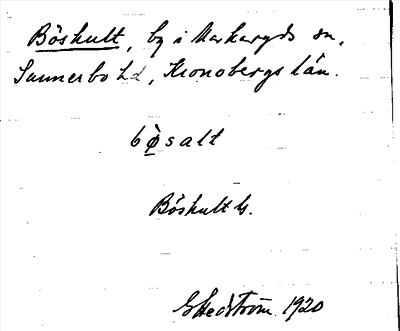 Böskult, by i Markaryds sn,
Sunnerbo hd, Kronobergs län.
bø̀salt
Böskult by.
G Hedström 1920